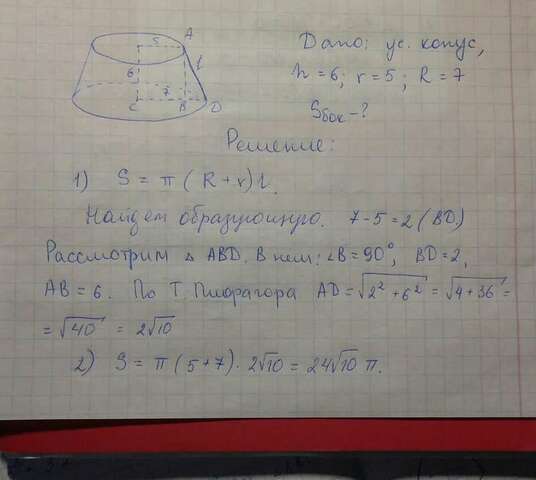 5
A
6
l
7
C
B
D
Дано: ус. конус,
h = 6; r = 5; R = 7
Sбок - ?
Решение:
1) S = π (R + r) l.
Найдем образующую. 7 - 5 = 2 (BD)
Рассмотрим △ ABD. В нем: ∠B = 90°, BD = 2,
AB = 6. По Т. Пифагора AD = √2² + 6² = √4 + 36 =
= √40 = 2√10
2) S = π (5 + 7) · 2√10 = 24√10 π.